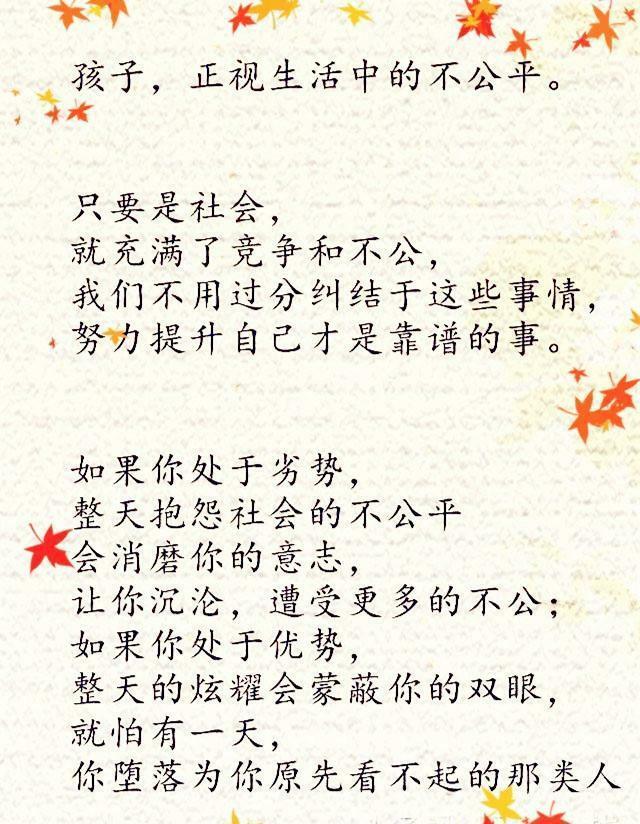 孩子，正视生活中的不公平。
只要是社会，
就充满了竞争和不公，
我们不用过分纠结于这些事情，
努力提升自己才是靠谱的事。
如果你处于劣势，
整天抱怨社会的不公平
会消磨你的意志，
让你沉沦，遭受更多的不公；
如果你处于优势，
整天的炫耀会蒙蔽你的双眼，
就怕有一天，
你堕落为你原先看不起的那类人